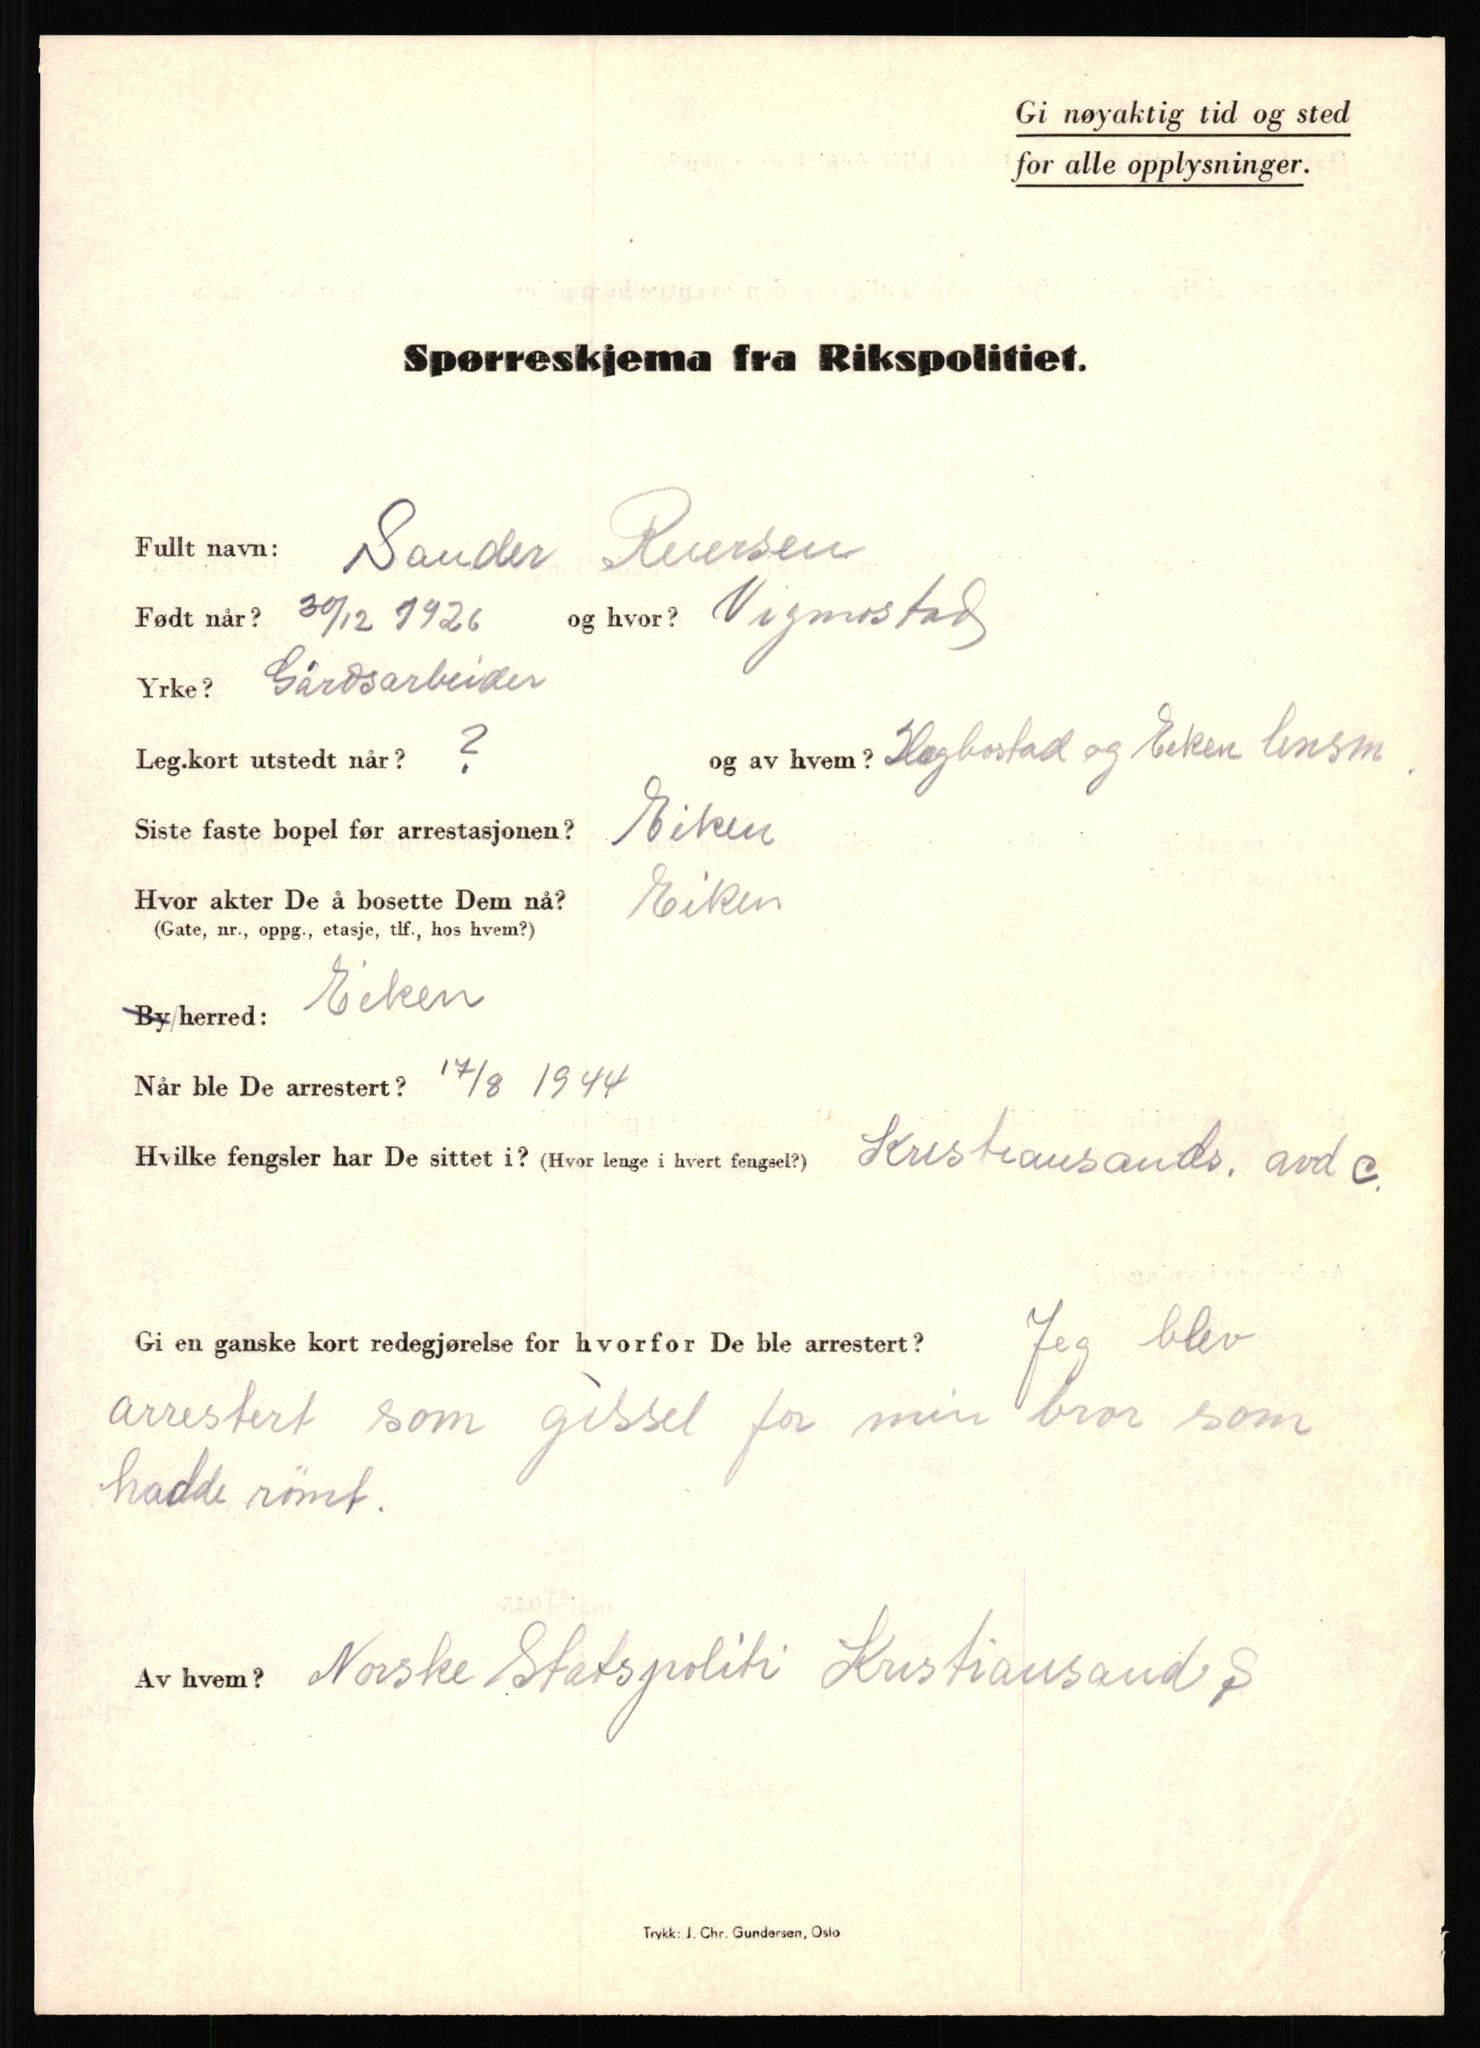 Gi nøyaktig tid og sted
for alle opplysninger.
Spørreskjema fra Rikspolitiet.
Fullt navn: Sander Reiersen
Født når? 30/12 1926 og hvor? Vigmostad
Yrke? Gårdsarbeider
Leg.kort utstedt når? ? og av hvem? Hegbostad og Eiken lensm.
Siste faste bopel før arrestasjonen? Eiken
Hvor akter De å bosette Dem nå? Eiken
(Gate, nr., oppg., etasje, tlf., hos hvem?)
By/herred: Eiken
Når ble De arrestert? 17/8 1944
Hvilke fengsler har De sittet i? (Hvor lenge i hvert fengsel?) Kristiansands. avd c.
Gi en ganske kort redegjørelse for hvorfor De ble arrestert? Jeg blev
arrestert som gissel for min bror som
hadde römt.
Av hvem? Norske Statspoliti Kristiansand S
Trykk: J. Chr. Gundersen, Oslo